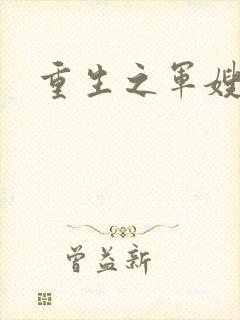 重生之军嫂
曾益新